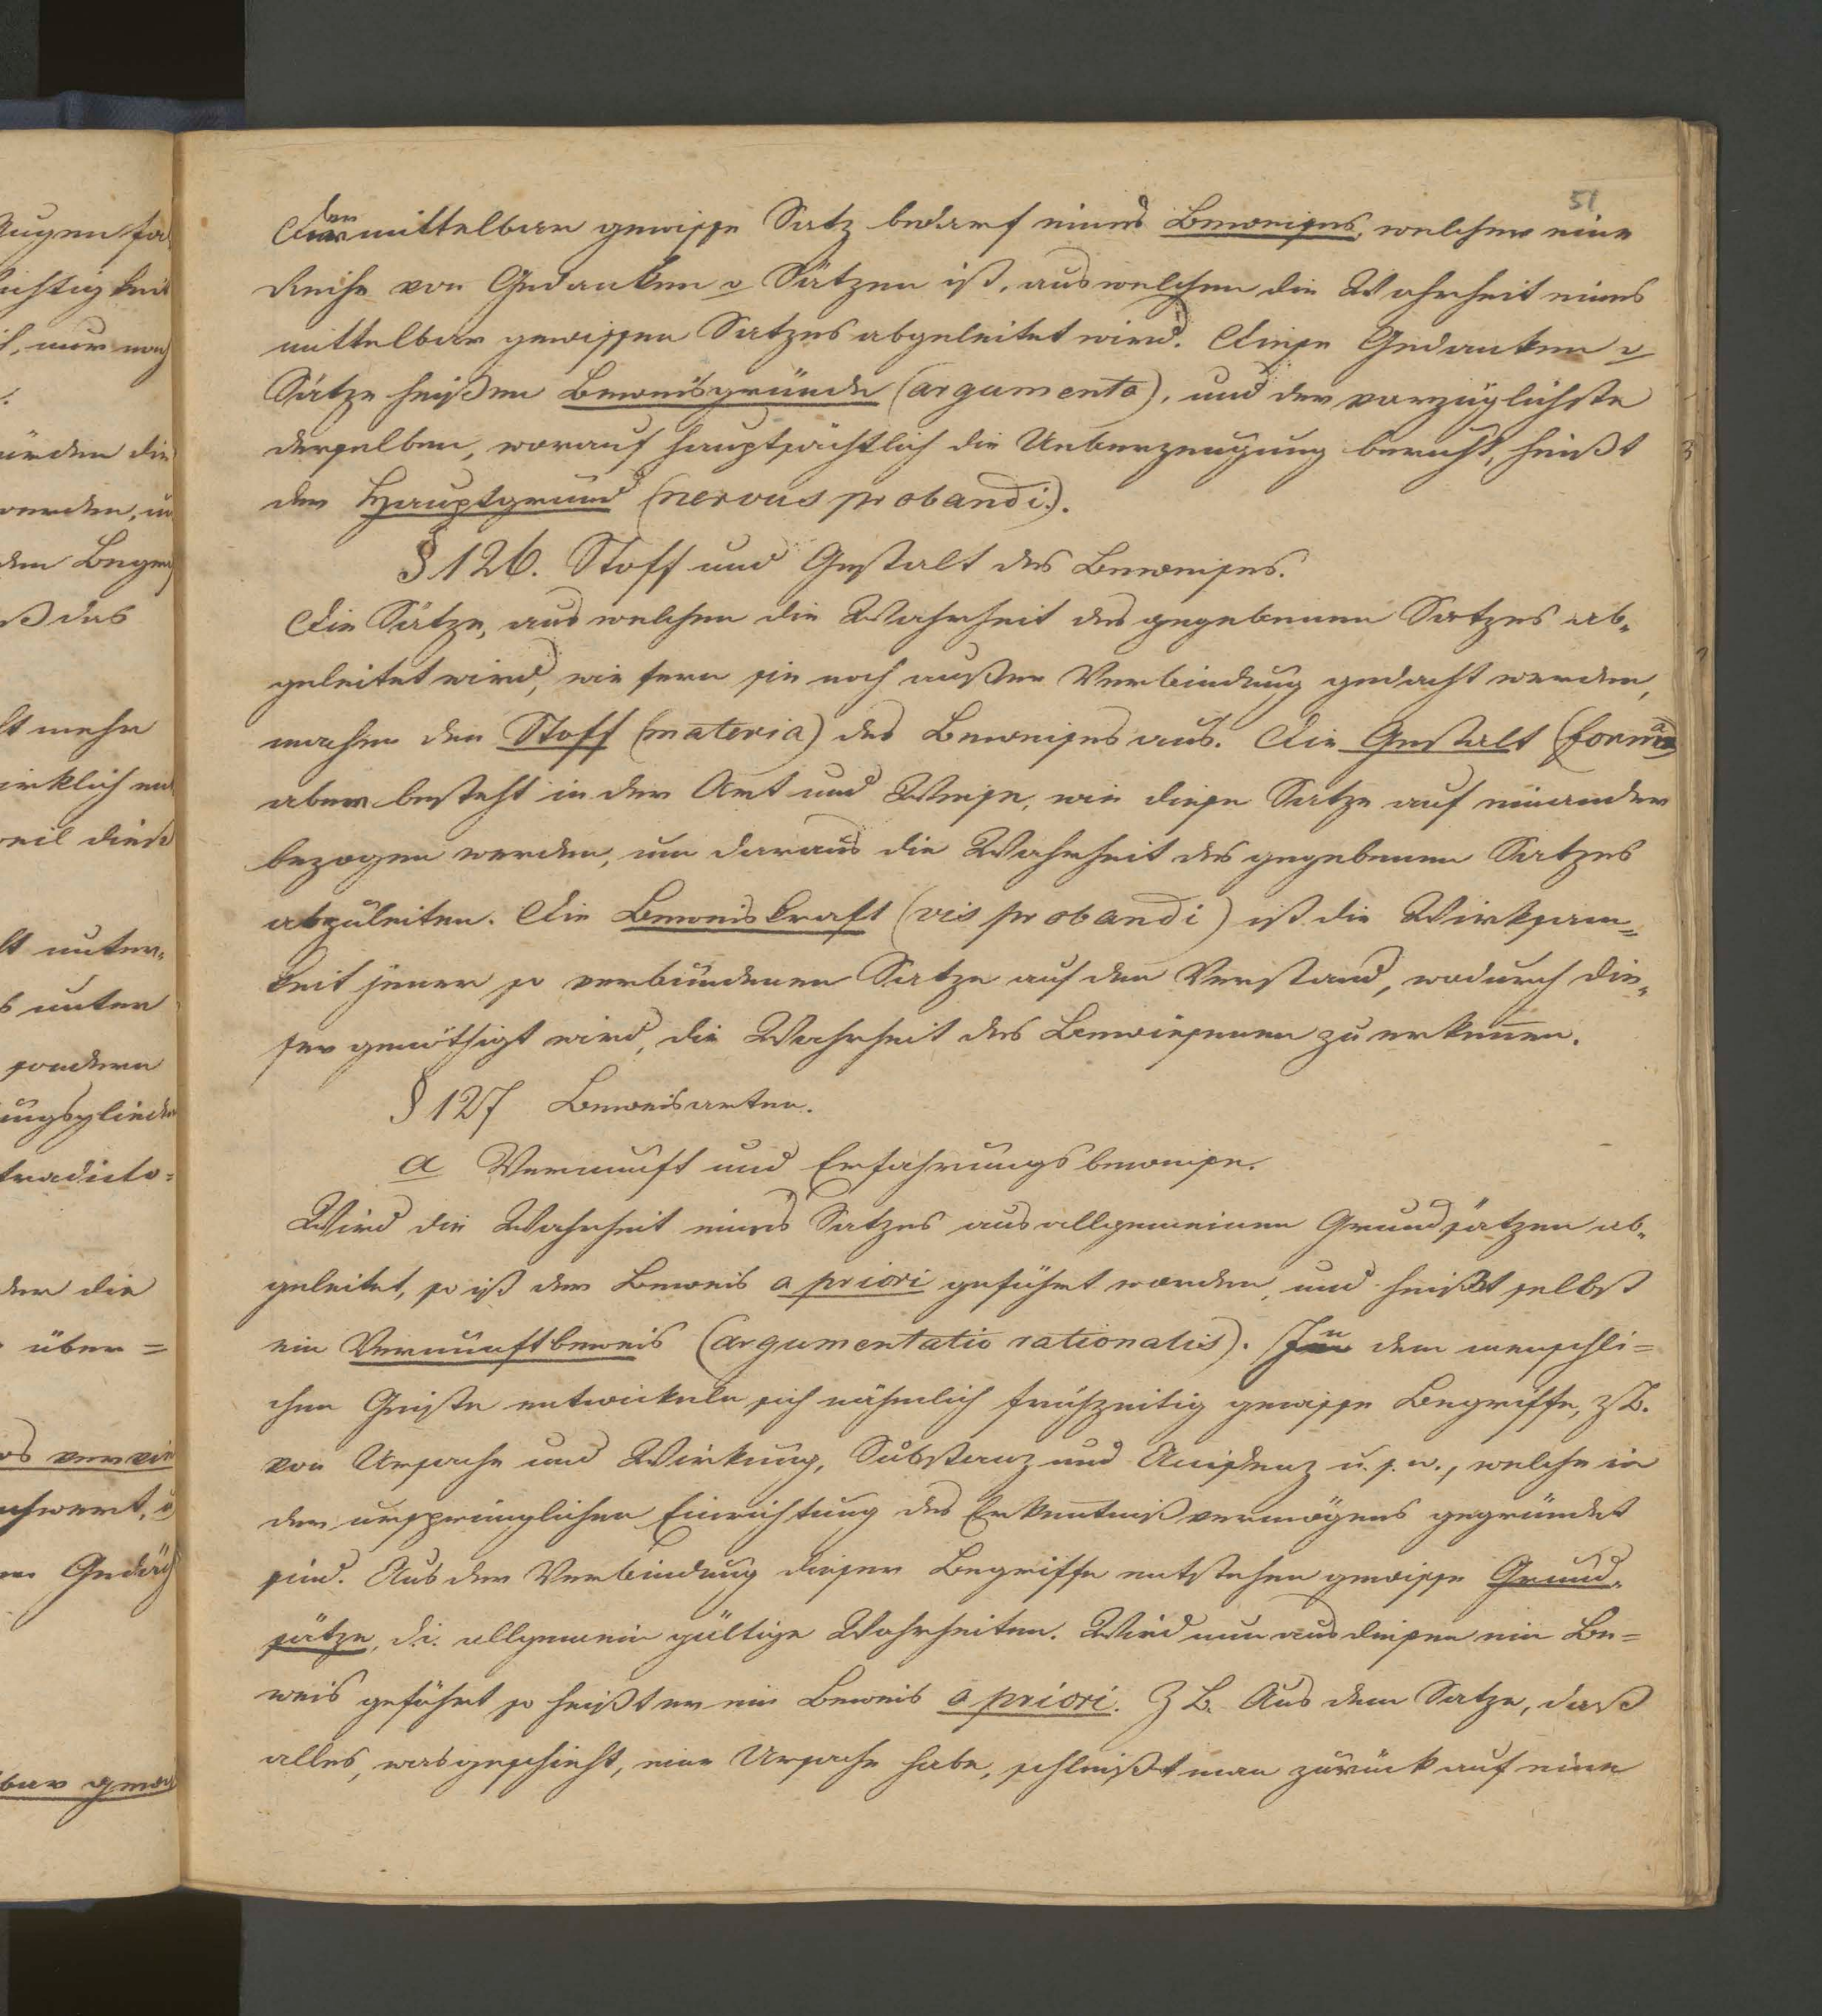 51
Der mittelbar gewisse Satz bedarf eines Beweises, welcher eine
Reihe von Gedanken u Sätzen ist, aus welchen die Wahrheit eines
mittelbar gewissen Satzes abgeleitet wird. Diese Gedanken u
Sätze heißen Beweisgründe (argumenta), und der vorzüglichste
derselben, worauf hauptsächtlich die Ueberzeugung beruht, heißt
der Hauptgrund (nervus probandi).
§ 126. Stoff und Gestalt des Beweises.
Die Sätze, aus welchen die Wahrheit des gegebenen Satzes ab-
geleitet wird, wie fern sie noch außer Verbindung gedacht werden,
machen den Stoff (materia) des Beweises aus. Die Gestalt (forma)
aber besteht in der Art und Weise, wie diese Satze auf einander
bezogen werden, um daraus die Wahrheit des gegebenen Satzes
abzuleiten. Die Beweiskraft (vis probandi) ist die Wirksam=
keit jener so verbundenen Satze auf den Verstand, wodurch die-
ser genöthigt wird, die Wahrheit des Bewiesenen zu erkennen.
§ 127 Beweisarten.
a Vernunft und Erfahrungsbeweise.
Wird die Wahrheit eines Satzes aus allgemeinen Grundsätzen ab-
geleitet, so ist der Beweis a priori geführt worden, und heißt selbst
ein Vernunftbeweis (argumentatio rationalis). In dem menschli=
chen Geiste entwickeln sich nähmlich frühzeitig gewisse Begriffe, z B.
von Ursache und Wirkung, Substanz und Accidenz u. s. w., welche in
der ursprünglichen Einrichtung des Erkenntnißvermögens gegründet
sind. Aus der Verbindung dieser Begriffe entstehen gewisse Grund-
sätze, d. i. allgemein gültige Wahrheiten. Wird nun aus diesen ein Be=
weis geführt so heißt er ein Beweis a priori. Z B. Aus dem Satze, daß
alles, was geschieht, eine Ursache habe, schleißt man zurück auf eine